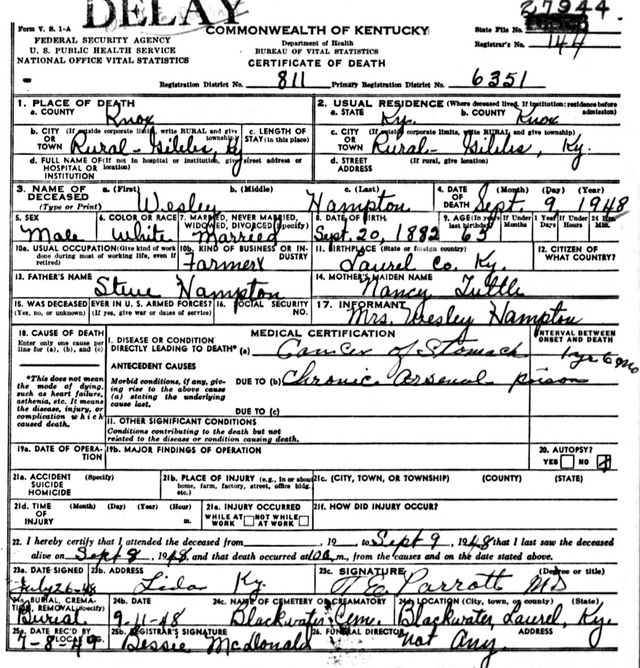 DELAY
27944
Form V. S. 1-A
COMMONWEALTH OF KENTUCKY
State File No.
FEDERAL SECURITY AGENCY
Department of Health
Registrar's No. 144
U. S. PUBLIC HEALTH SERVICE
BUREAU OF VITAL STATISTICS
NATIONAL OFFICE VITAL STATISTICS
CERTIFICATE OF DEATH
Registration District No. 811 Primary Registration District No. 6351
1. PLACE OF DEATH
a. COUNTY Knox
2. USUAL RESIDENCE (Where deceased lived. If institution: residence before admission)
a. STATE Ky. b. COUNTY Knox
b. CITY (If outside corporate limits, write RURAL and give township)
OR
TOWN Rural- Ky
c. LENGTH OF STAY (in this place)
c. CITY (If outside corporate limits, write RURAL and give township)
OR
TOWN Rural- Ky.
d. FULL NAME OF (If not in hospital or institution, give street address or location)
HOSPITAL OR
INSTITUTION
d. STREET (If rural, give location)
ADDRESS
3. NAME OF DECEASED (Type or Print)
a. (First) b. (Middle) c. (Last)
Wesley Hampton
4. DATE OF DEATH (Month) (Day) (Year)
Sept. 9 1948
5. SEX
Male
6. COLOR OR RACE
White
7. MARRIED, NEVER MARRIED, WIDOWED, DIVORCED (Specify)
Married
8. DATE OF BIRTH
Sept. 20, 1882
9. AGE (In years last birthday) If Under 1 Year If Under 24 Hrs.
Months Days Hours Min.
65
10a. USUAL OCCUPATION (Give kind of work done during most of working life, even if retired)
10b. KIND OF BUSINESS OR INDUSTRY
Farmer
11. BIRTHPLACE (State or foreign country)
Laurel Co. Ky.
12. CITIZEN OF WHAT COUNTRY?
13. FATHER'S NAME
Steve Hampton
14. MOTHER'S MAIDEN NAME
Nancy Tuttle
15. WAS DECEASED EVER IN U. S. ARMED FORCES?
(Yes, no, or unknown) (If yes, give war or dates of service)
16. SOCIAL SECURITY NO.
17. INFORMANT
Mrs. Wesley Hampton
18. CAUSE OF DEATH
Enter only one cause per line for (a), (b), and (c)
MEDICAL CERTIFICATION
INTERVAL BETWEEN ONSET AND DEATH
I. DISEASE OR CONDITION
DIRECTLY LEADING TO DEATH* (a) Cancer of Stomach 1 yr 6 mo
*This does not mean the mode of dying, such as heart failure, asthenia, etc. It means the disease, injury, or complication which caused death.
ANTECEDENT CAUSES
Morbid conditions, if any, giving rise to the above cause (a) stating the underlying cause last.
DUE TO (b) Chronic Arsenal poison
DUE TO (c)
II. OTHER SIGNIFICANT CONDITIONS
Conditions contributing to the death but not related to the disease or condition causing death.
19a. DATE OF OPERATION
19b. MAJOR FINDINGS OF OPERATION
20. AUTOPSY?
YES NO
21a. ACCIDENT (Specify)
SUICIDE
HOMICIDE
21b. PLACE OF INJURY (e.g., in or about home, farm, factory, street, office bldg. etc.)
21c. (CITY, TOWN, OR TOWNSHIP) (COUNTY) (STATE)
21d. TIME OF INJURY (Month) (Day) (Year) (Hour)
m.
21e. INJURY OCCURRED
WHILE AT WORK NOT WHILE AT WORK
21f. HOW DID INJURY OCCUR?
22. I hereby certify that I attended the deceased from , 19 to Sept 9, 1948 that I last saw the deceased
alive on Sept 8, 1948, and that death occurred at m., from the causes and on the date stated above.
23a. DATE SIGNED
July 26-48
23b. ADDRESS
Lida Ky.
23c. SIGNATURE (Degree or title)
T E Parrott MD
24a. BURIAL, CREMATION, REMOVAL (Specify)
Burial
24b. DATE
9-11-48
24c. NAME OF CEMETERY OR CREMATORY
Blackwater Cem.
24d. LOCATION (City, town, or county) (State)
Blackwater, Laurel, Ky.
25a. DATE REC'D BY LOCAL REG.
7-8-49
25b. REGISTRAR'S SIGNATURE
Bessie McDonald
26. FUNERAL DIRECTOR ADDRESS
not Any.